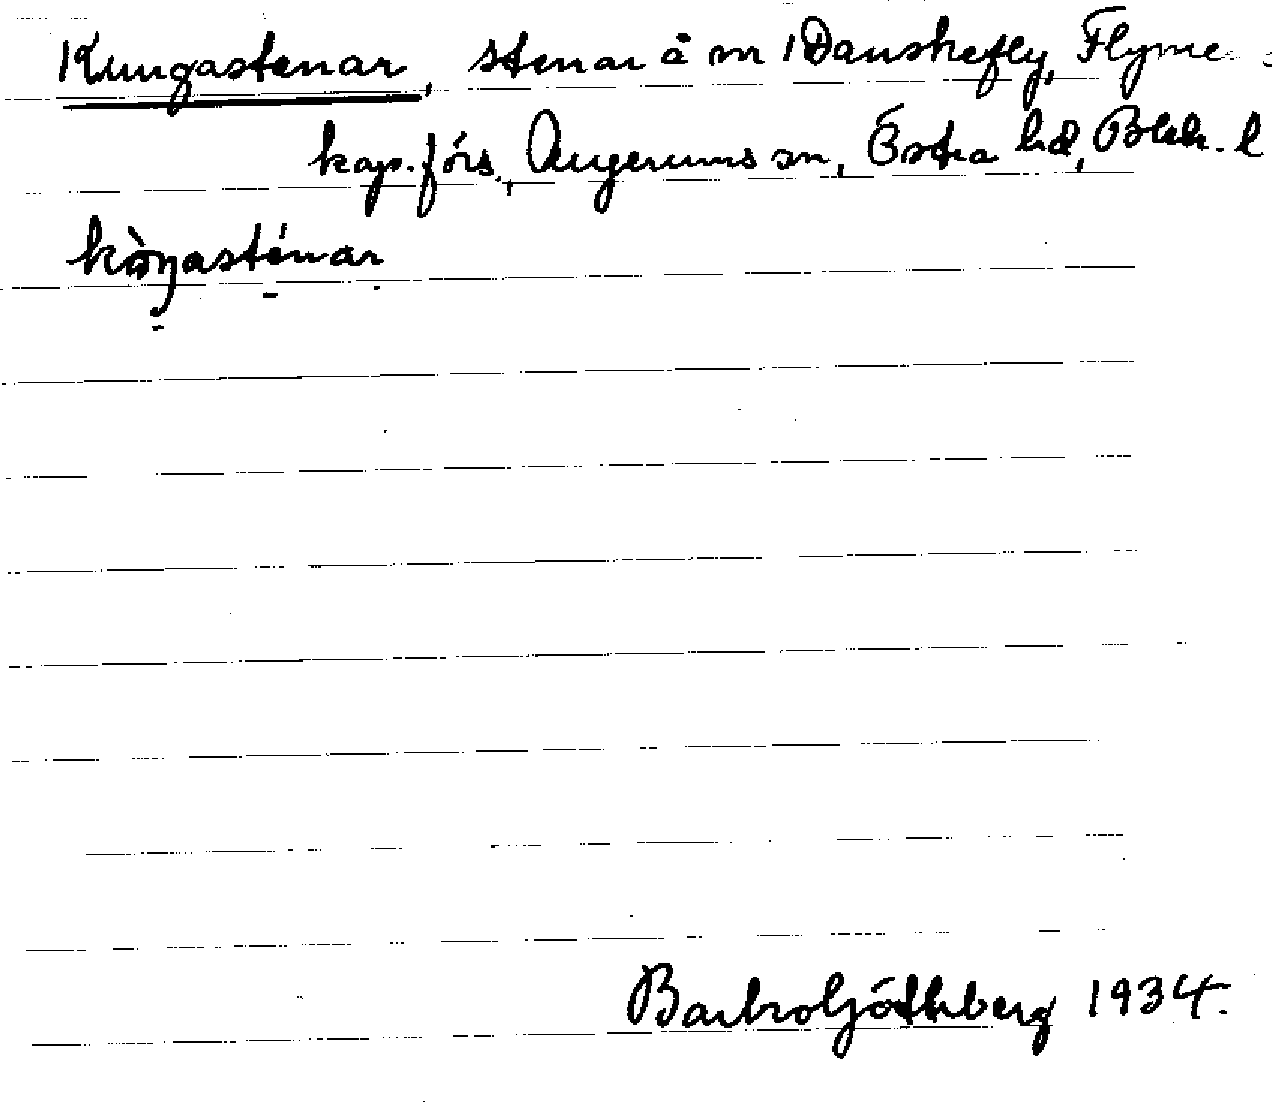 Kungastenar, stenar å m 1 Danskefly, Flyme-
kap.förs., Augerums sn, Östra hd, Blek. l
kòŋasténar
Barbro Göthberg 1934.